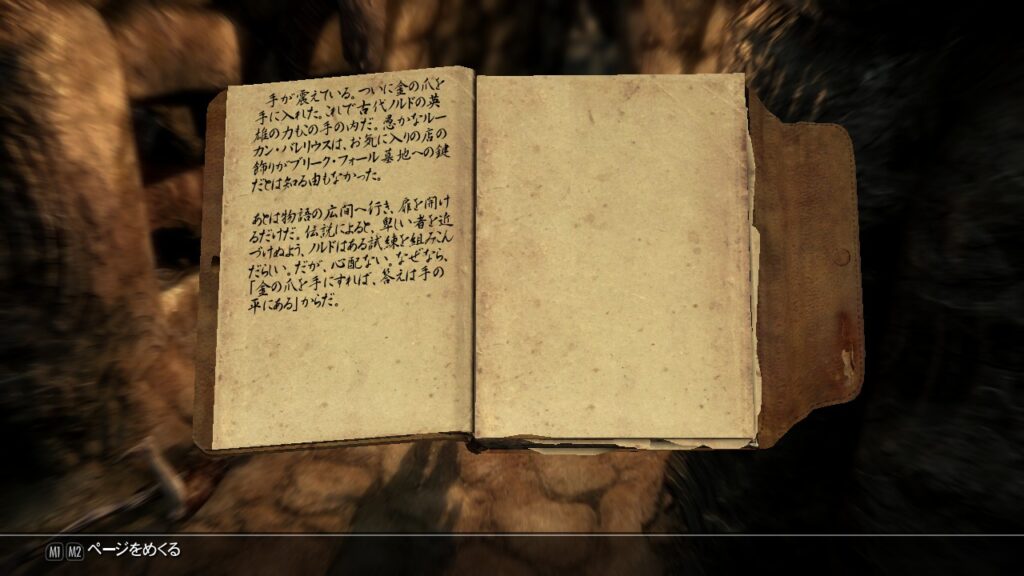 手が震えている。ついに金の爪を
手に入れた。これで古代ノルドの英
雄の力もこの手の内だ。愚かなルー
カン・バレリウスは、お気に入りの店の
飾りがブリーク・フォール墓地への鍵
だとは知る由もなかった。
あとは物語の広間へ行き、扉を開け
るだけだ。伝説によると、卑しい者を近
づけぬよう、ノルドはある試練を組みこん
だらしい。だが、心配ない。なぜなら、
「金の爪を手にすれば、答えは手の
平にある」からだ。
M1 M2 ページをめくる